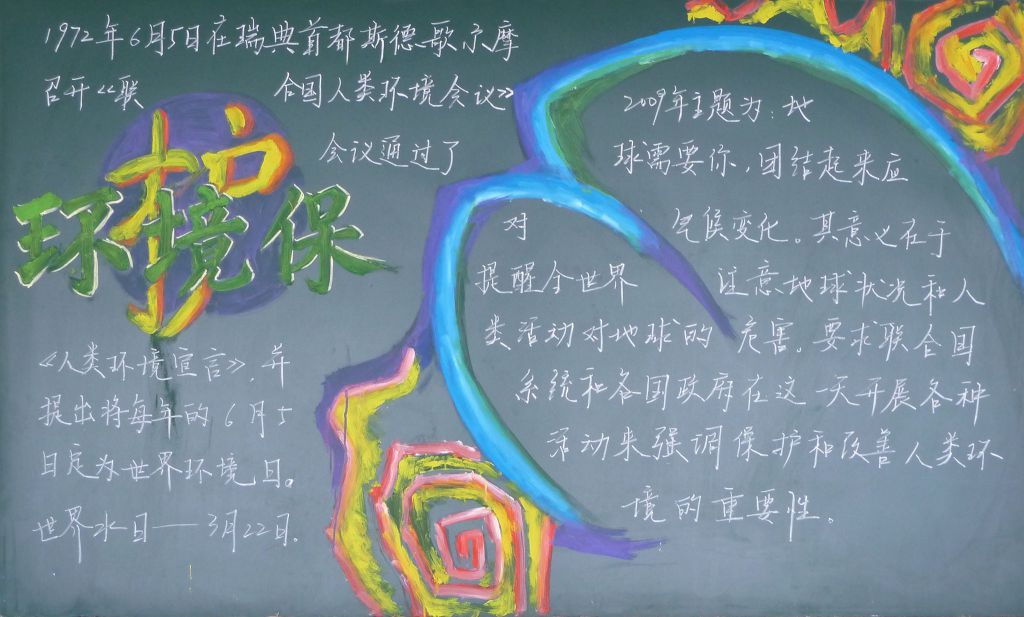 1972年6月5日在瑞典首都斯德歌尔摩
召开《联合国人类环境会议》
会议通过了
环境保护
《人类环境宣言》，并
提出将每年的6月5
日定为世界环境日。
世界水日——3月22日.
2009年主题为：地
球需要你，团结起来应
对气候变化。其意义在于
提醒全世界注意地球状况和人
类活动对地球的危害。要求联合国
系统和各国政府在这一天开展各种
活动来强调保护和改善人类环
境的重要性。